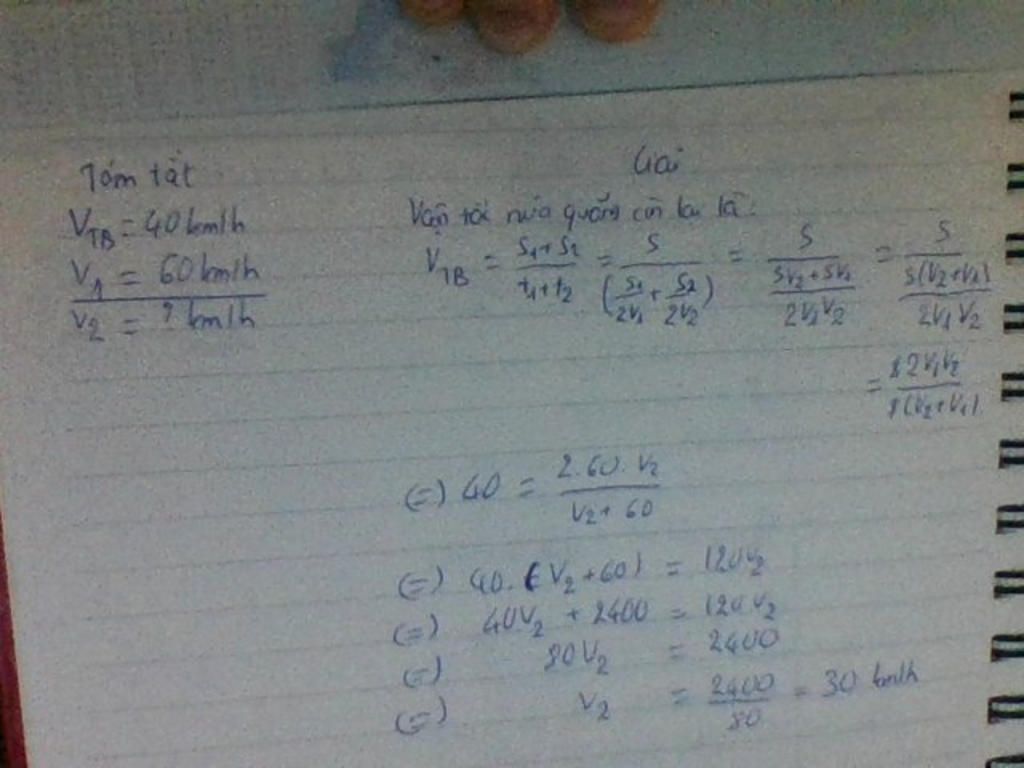 Tóm tắt
V_TB = 40 km/h
V_1 = 60 km/h
V_2 = ? km/h
Giải
Vận tốc nửa quãng còn lại là:
V_TB = (S_1 + S_2)/(t_1 + t_2) = S/(S_1/2V_1 + S_2/2V_2) = S/((SV_2 + SV_1)/2V_1V_2) = S/(S(V_2 + V_1)/2V_1V_2)
= S2V_1V_2/S(V_2 + V_1)
(=) 40 = 2.60.V_2/(V_2 + 60)
(=) 40.(V_2 + 60) = 120V_2
(=) 40V_2 + 2400 = 120V_2
(=) 80V_2 = 2400
(=) V_2 = 2400/80 = 30 km/h